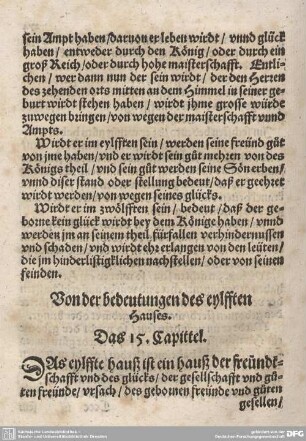 sein Ampt haben/daruon er leben wirdt/ vnnd glück
haben/ entweder durch den König/ oder durch ein
groß Reich/oder durch hohe maisterschafft. Entli-
chen/ wer dann nun der sein wirdt/ der den Herren
des zehenden orts mitten an dem Himmel in seiner ge-
burt wirdt stehen haben/ wirdt jhme grosse würde
zuwegen bringen/von wegen der maisterschafft vnnd
Ampts.
Wirdt er im eylfften sein/ werden seine freünd güt
von jme haben/ vnd er wirdt sein güt mehren von des
Königs theil/ vnd sein güt werden seine Sön erben/
vnnd diser stand oder stellung bedeut/daß er geehret
wirdt werden/von wegen seines glücks.
Wirdt er im zwölfften sein/ bedeut/ daß der ge-
borne kein glück wirdt bey dem Könige haben/ vnnd
werden jm an seinem theil fürfallen verhindernussen
vnd schaden/ vnd wirdt ehr erlangen von den leüten/
die jm hinderlistigklichen nachstellen/ oder von seinen
feinden.
Von der bedeutungen des eylfften
Hauses.
Das 15. Capittel.
DAs eylffte hauß ist ein hauß der freündt-
schafft vnd des glücks/ der gesellschafft vnd gü-
ten freünde/ vrsach/ des gebornen freünde vnd güten
gesellen/
Sächsische Landesbibliothek -
Staats- und Universitätsbibliothek Dresden
gefördert von der
Deutschen Forschungsgemeinschaft
DFG